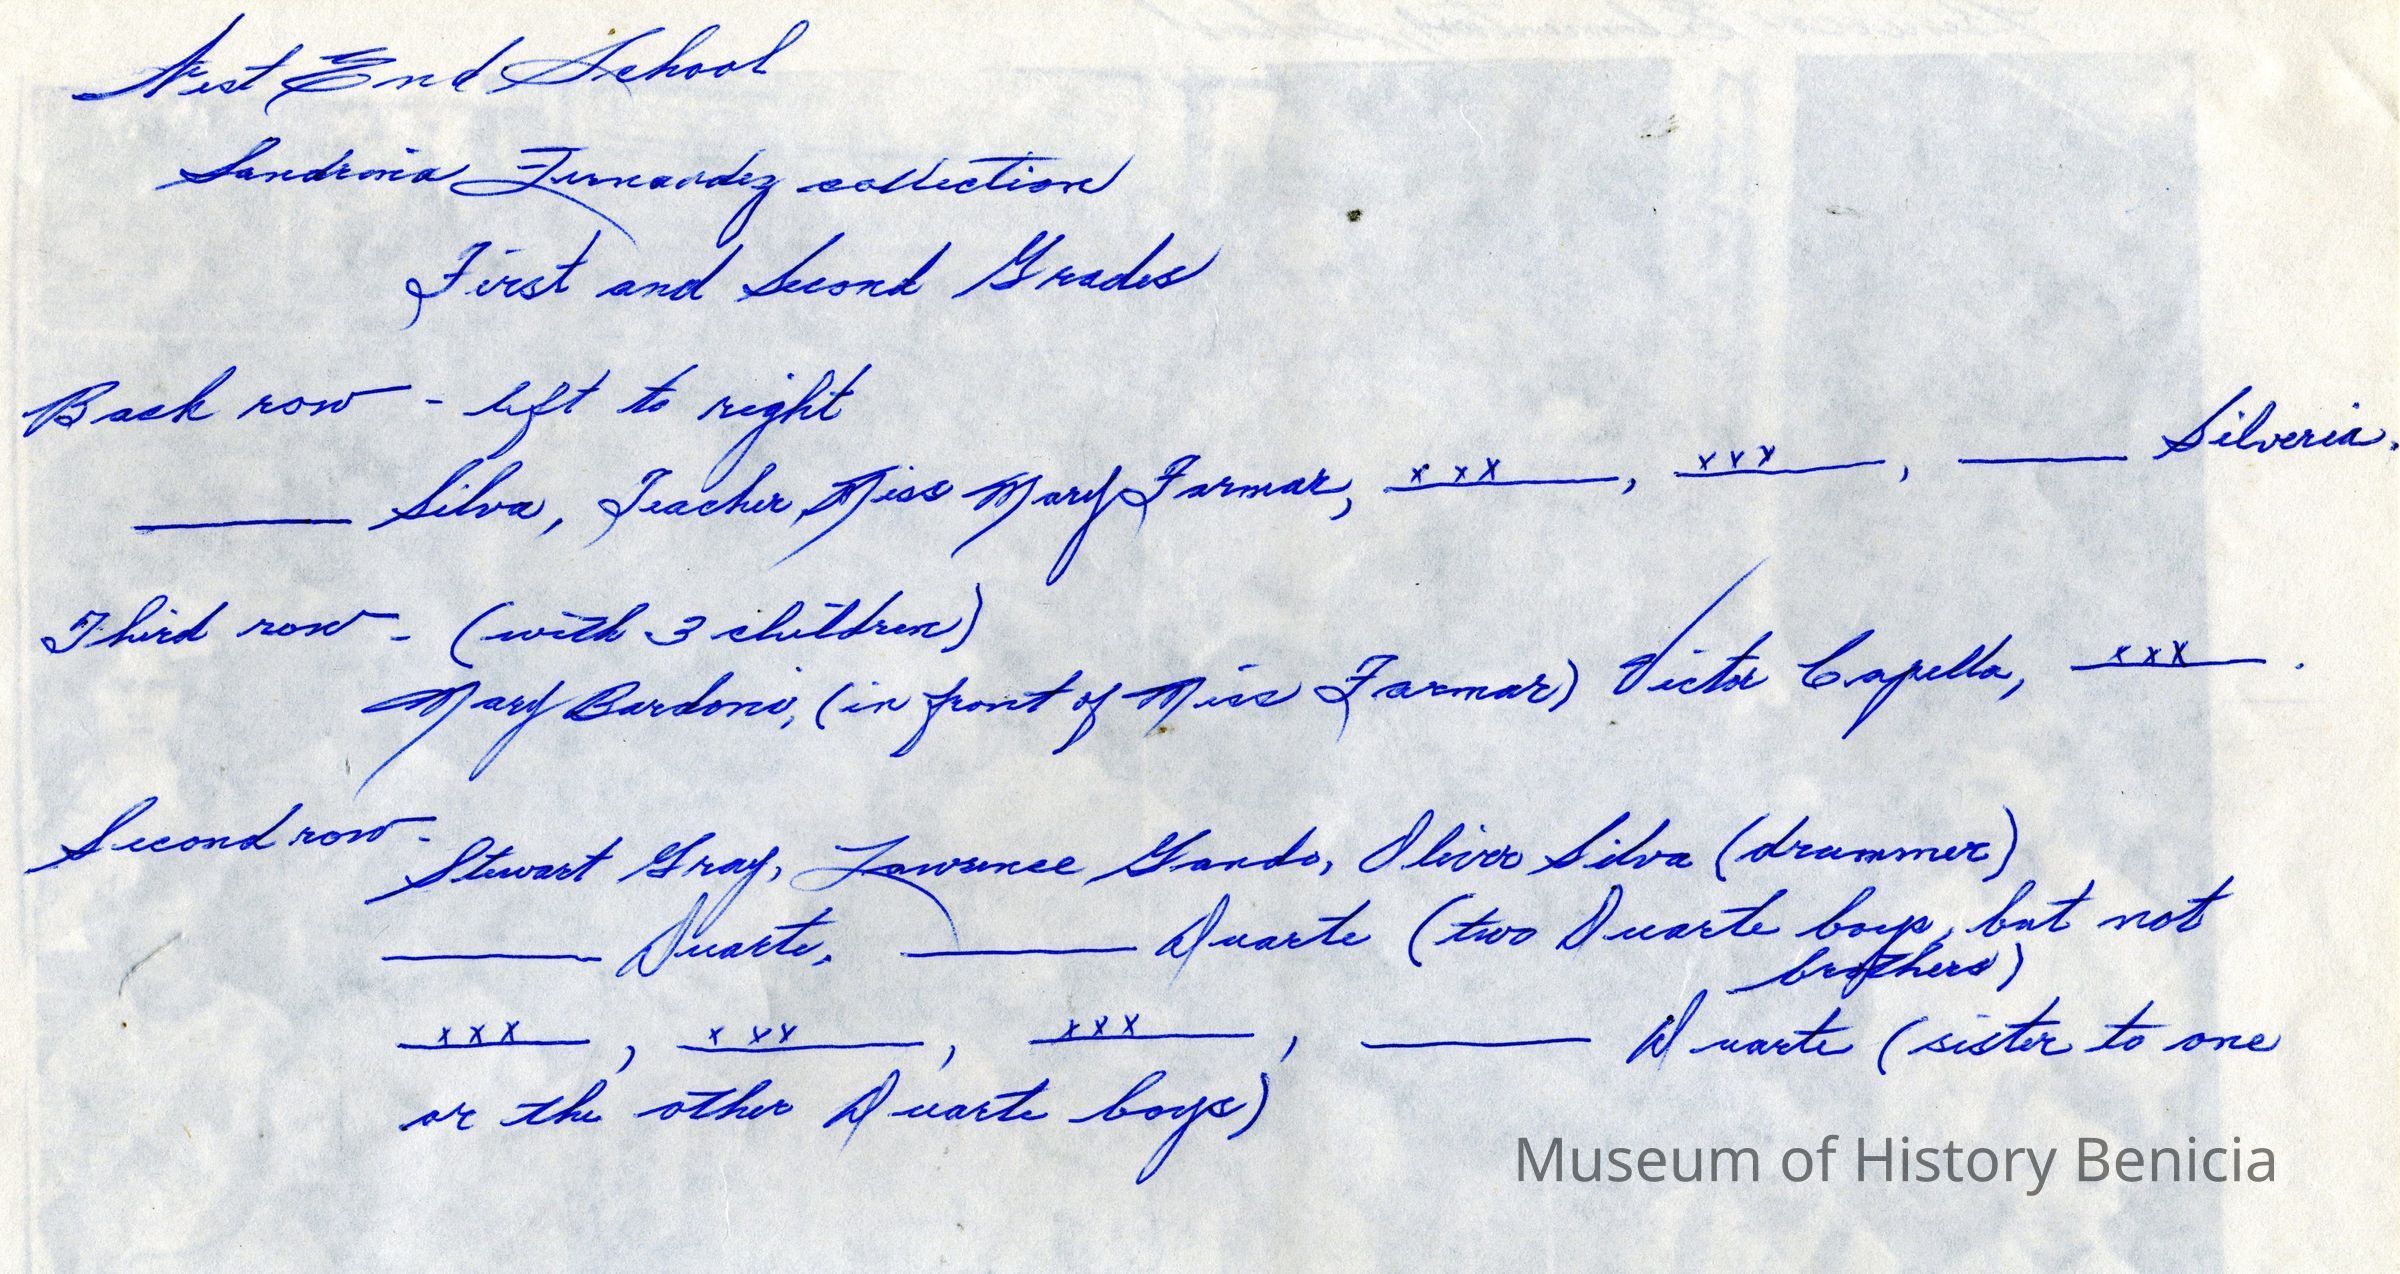 West End School
Sandrina Fernandez collection
First and Second Grades
Back row - left to right
_____ Silva, Teacher Miss Mary Farmar, xxx, xxx, _____ Silveria.
Third row - (with 3 children)
Mary Bardoni, (in front of Miss Farmar) Victor Capella, xxx.
Second row -
Stewart Gray, Lawrence Gando, Oliver Silva (drummer)
_____ Duarte, _____ Duarte (two Duarte boys, but not
brothers)
xxx, xxx, xxx, _____ Duarte (sister to one
or the other Duarte boys)
Museum of History Benicia